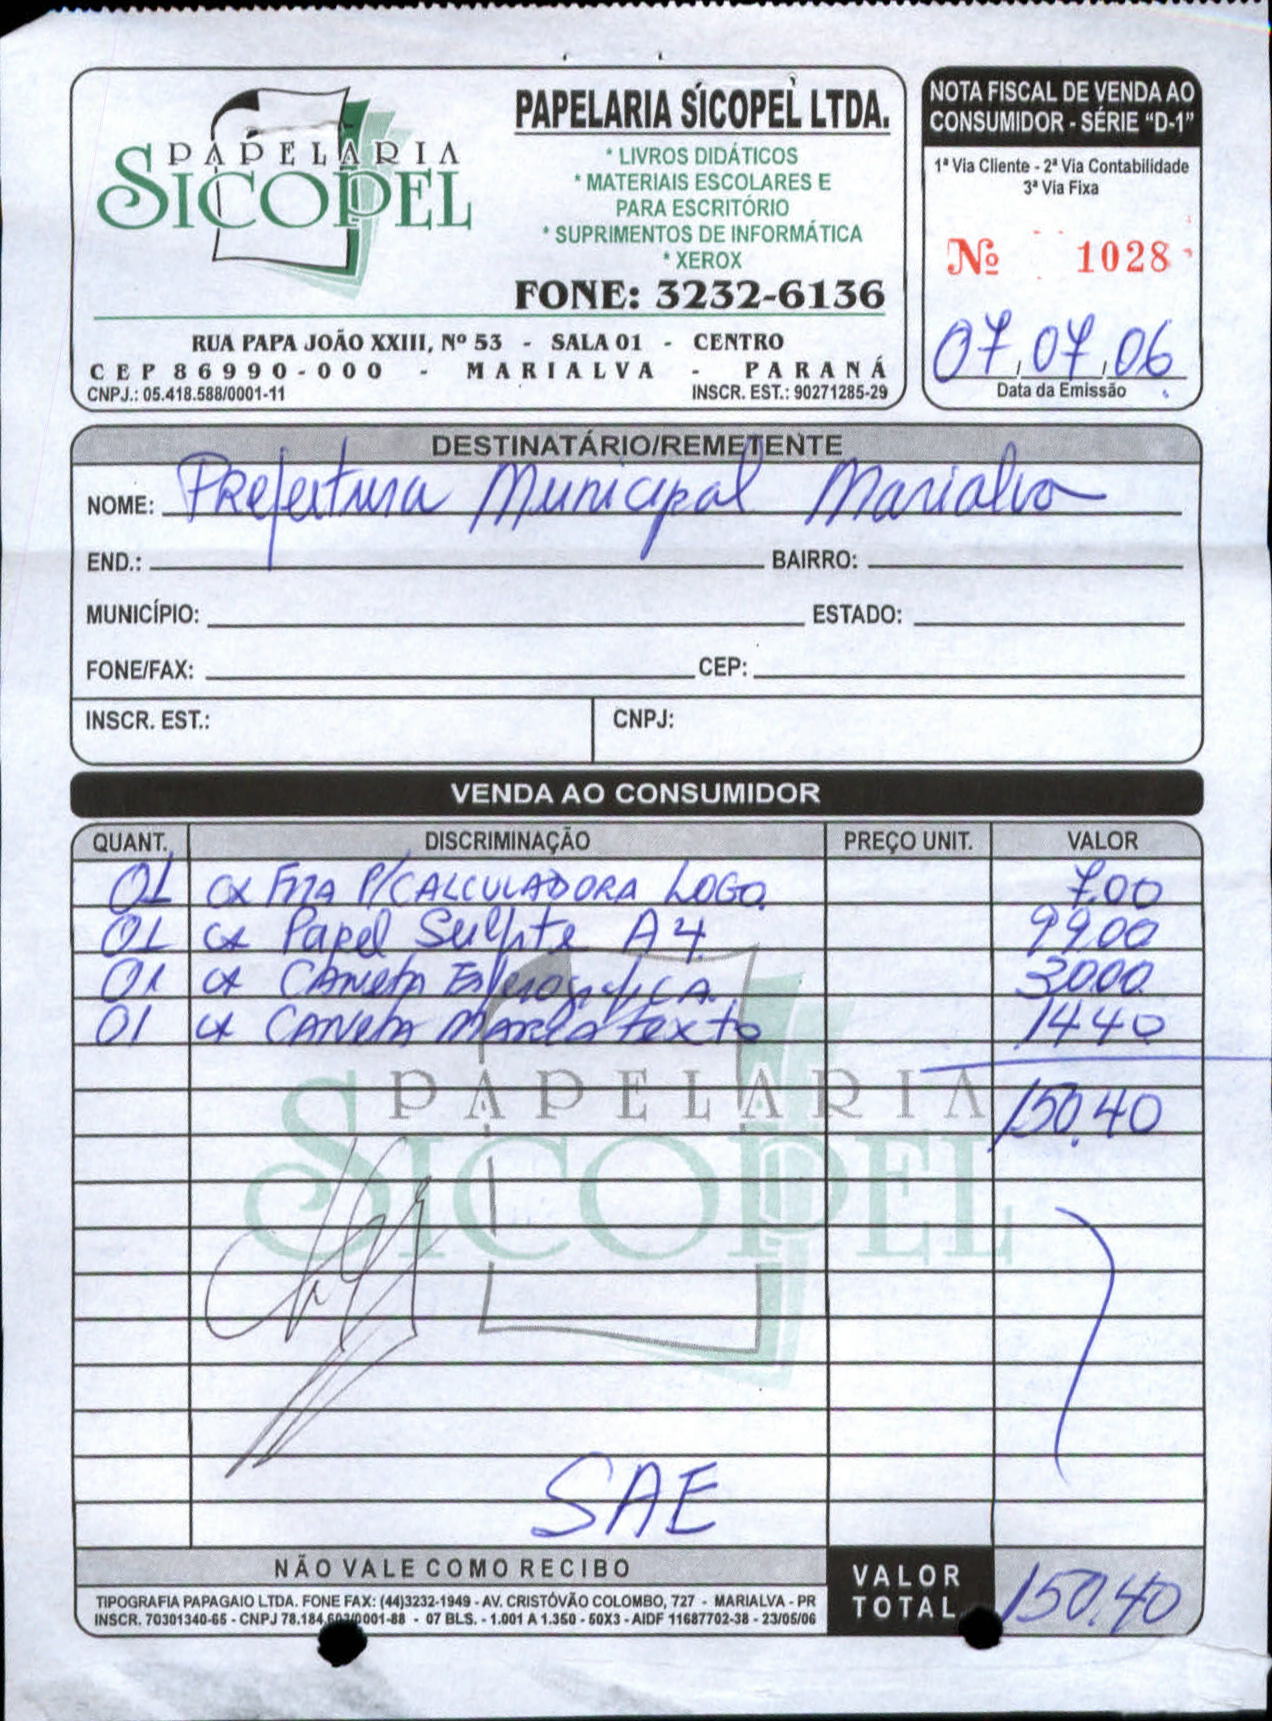 PAPELARIA
SICOPEL
PAPELARIA SICOPEL LTDA.
* LIVROS DIDÁTICOS
* MATERIAIS ESCOLARES E
PARA ESCRITÓRIO
* SUPRIMENTOS DE INFORMÁTICA
* XEROX
FONE: 3232-6136
RUA PAPA JOÃO XXIII, Nº 53 - SALA 01 - CENTRO
CEP 86990-000 - MARIALVA - PARANÁ
CNPJ.: 05.418.588/0001-11 INSCR. EST.: 90271285-29
NOTA FISCAL DE VENDA AO
CONSUMIDOR - SÉRIE "D-1"
1ª Via Cliente - 2ª Via Contabilidade
3ª Via Fixa
Nº 1028
07,07,06
Data da Emissão
DESTINATÁRIO/REMETENTE
NOME: Prefeitura Municipal Marialva
END.: BAIRRO:
MUNICÍPIO: ESTADO:
FONE/FAX: CEP:
INSCR. EST.: CNPJ:
VENDA AO CONSUMIDOR
QUANT. DISCRIMINAÇÃO PREÇO UNIT. VALOR
01 cx FITA P/CALCULADORA LOGO. 7.00
01 cx Papel Sulfite A4 99.00
01 cx CANETA Esferográfica 30.00
01 cx CANETA MARCA texto 14.40
150.40
PAPELARIA
SICOPEL
SAE
NÃO VALE COMO RECIBO
VALOR TOTAL 150.40
TIPOGRAFIA PAPAGAIO LTDA. FONE FAX: (44)3232-1949 - AV. CRISTÓVÃO COLOMBO, 727 - MARIALVA - PR
INSCR. 70301340-65 - CNPJ 78.184.603/0001-88 - 07 BLS. - 1.001 A 1.350 - 50X3 - AIDF 11687702-38 - 23/05/06